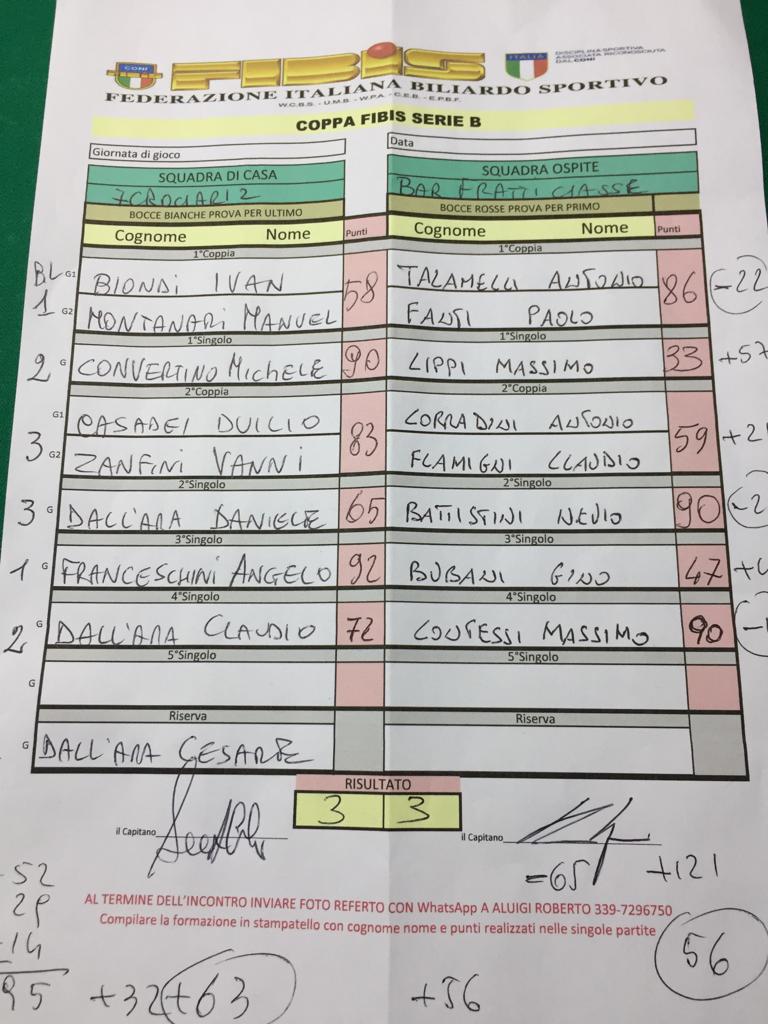 CONI
FIBiS
ITALIA
DISCIPLINA SPORTIVA
ASSOCIATA RICONOSCIUTA
DAL CONI
FEDERAZIONE ITALIANA BILIARDO SPORTIVO
W.C.B.S. - U.M.B. - W.P.A. - C.E.B. - E.P.B.F.
COPPA FIBIS SERIE B
Giornata di gioco Data
SQUADRA DI CASA SQUADRA OSPITE
7CROCIARI 2 BAR FRATTI CLASSE
BOCCE BIANCHE PROVA PER ULTIMO BOCCE ROSSE PROVA PER PRIMO
Cognome Nome Punti Cognome Nome Punti
1°Coppia 1°Coppia
BL G1 BIONDI IVAN 58 TALAMELLI ANTONIO 86 -22
1 G2 MONTANARI MANUEL FANTI PAOLO
1°Singolo 1°Singolo
2 G CONVERTINO MICHELE 90 LIPPI MASSIMO 33 +57
2°Coppia 2°Coppia
G1 CASADEI DUILIO 83 CORRADINI ANTONIO 59 +2
3 G2 ZANFINI VANNI FLAMIGNI CLAUDIO
2°Singolo 2°Singolo
3 G DALL'ARA DANIELE 65 BATTISTINI NEVIO 90 -2
3°Singolo 3°Singolo
1 G FRANCESCHINI ANGELO 92 BUBANI GINO 47 +4
4°Singolo 4°Singolo
2 G DALL'ARA CLAUDIO 72 CONTESSI MASSIMO 90 -1
5°Singolo 5°Singolo
G
Riserva Riserva
G DALL'ARA CESARE
RISULTATO
3 3
il Capitano il Capitano
=65 +121
52
AL TERMINE DELL'INCONTRO INVIARE FOTO REFERTO CON WhatsApp A ALUIGI ROBERTO 339-7296750
Compilare la formazione in stampatello con cognome nome e punti realizzati nelle singole partite
14
56
95 +32 +63 +56